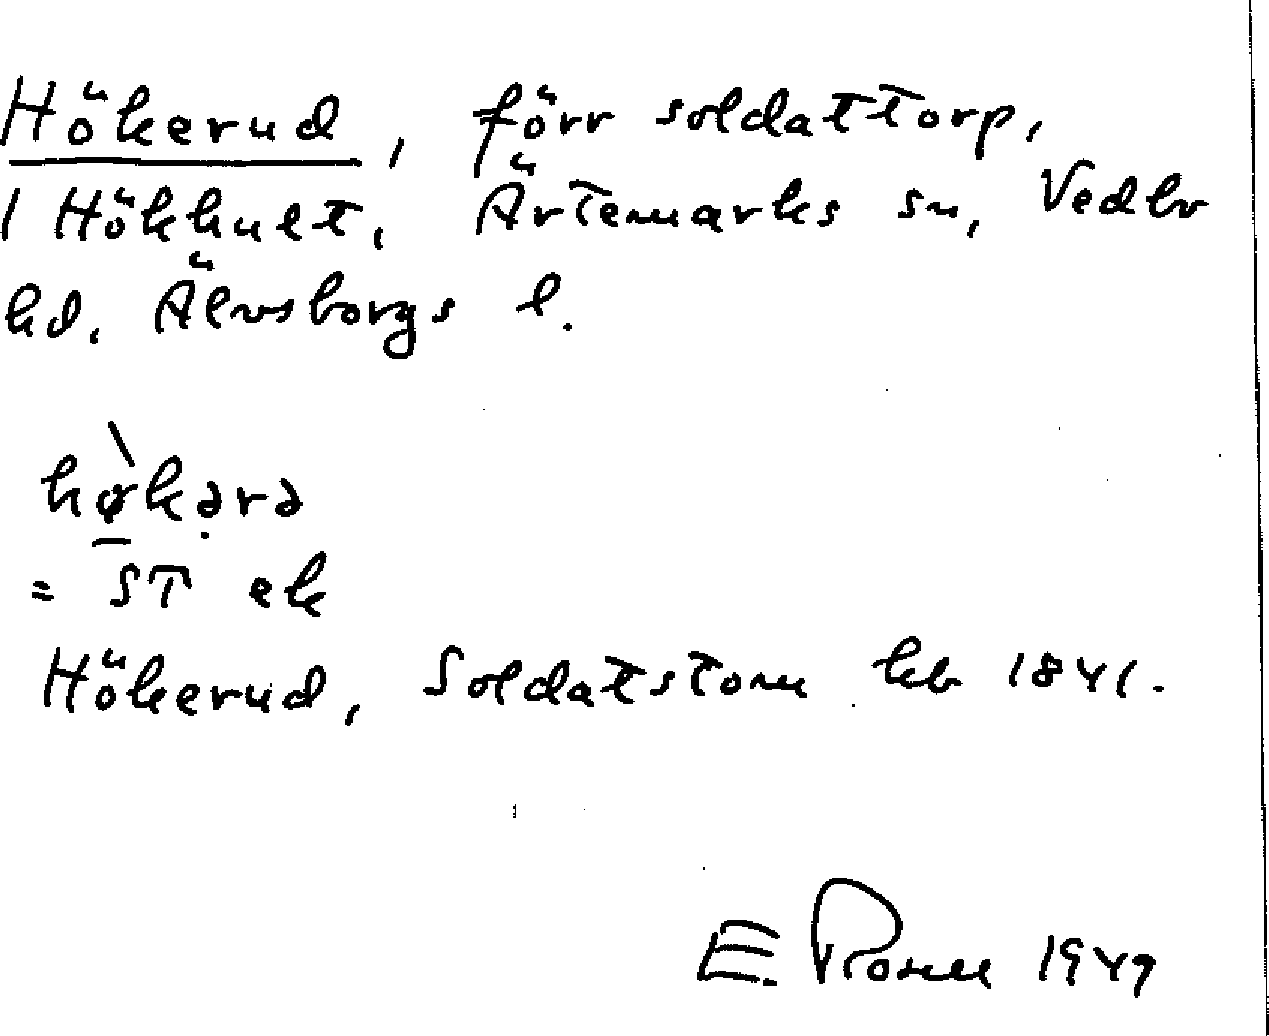 Hökerud, förr soldattorp,
/ Hökhult, Ärtemarks sn, Vedbo
hd. Älvsborgs l.
hø̀kərə
= ST ek
Hökerud, Soldatstom kb 1841.
E. Rosell 1949